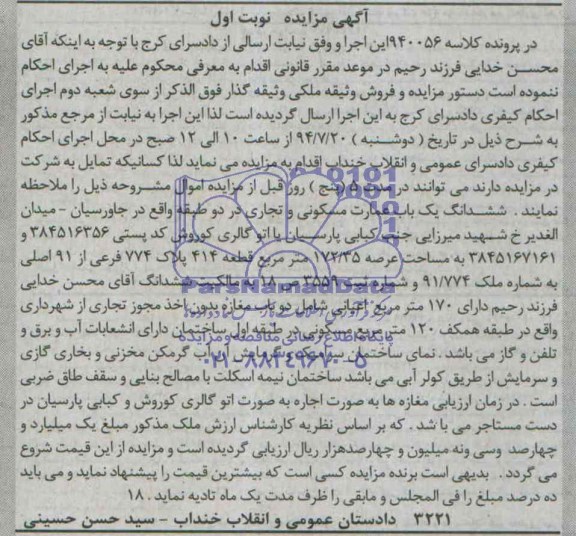 آگهی مزایده نوبت اول
در پرونده کلاسه ۹۴۰۰۵۶این اجرا و وفق نیابت ارسالی از دادسرای کرج با توجه به اینکه آقای
محسن خدایی فرزند رحیم در موعد مقرر قانونی اقدام به معرفی محکوم علیه به اجرای احکام
ننموده است دستور مزایده و فروش وثیقه ملکی وثیقه گذار فوق الذکر از سوی شعبه دوم اجرای
احکام کیفری دادسرای کرج به این اجرا ارسال گردیده است لذا این اجرا به نیابت از مرجع مذکور
به شرح ذیل در تاریخ ( دوشنبه ) ۹۴/۷/۲۰ از ساعت ۱۰ الی ۱۲ صبح در محل اجرای احکام
کیفری دادسرای عمومی و انقلاب خنداب اقدام به مزایده می نماید لذا کسانیکه تمایل به شرکت
در مزایده دارند می توانند در مدت ۵ (پنج ) روز قبل از مزایده اموال مشروحه ذیل را ملاحظه
نمایند . ششدانگ یک باب عمارت مسکونی و تجاری در دو طبقه واقع در جاورسیان - میدان
الغدیر خ شهید میرزایی جنب کبابی پارسیان یا اتو گالری کوروش کد پستی ۳۸۴۵۱۶۳۵۶ و
۳۸۴۵۱۶۷۱۶۱ به مساحت عرصه ۱۷۲/۳۵ متر مربع قطعه ۴۱۴ پلاک ۷۷۴ فرعی از ۹۱ اصلی
به شماره ملک ۹۱/۷۷۴ و شماره ثبت ۳۵۵۹ ص ۱۸ به مالکیت ششدانگ آقای محسن خدایی
فرزند رحیم دارای ۱۷۰ متر مربع اعیانی شامل دو باب مغازه بدون اخذ مجوز تجاری از شهرداری
واقع در طبقه همکف ۱۲۰ متر مربع مسکونی در طبقه اول ساختمان دارای انشعابات آب و برق و
تلفن و گاز می باشد . نمای ساختمان سرامیک و گرمایش آن آب گرمکن مخزنی و بخاری گازی
و سرمایش از طریق کولر آبی می باشد ساختمان نیمه اسکلت با مصالح بنایی و سقف طاق ضربی
است . در زمان ارزیابی مغازه ها به صورت اجاره به صورت اتو گالری کوروش و کبابی پارسیان در
دست مستاجر می با شد . که بر اساس نظریه کارشناس ارزش ملک مذکور مبلغ یک میلیارد و
چهارصد وسی ونه میلیون و چهارصدهزار ریال ارزیابی گردیده است و مزایده از این قیمت شروع
می گردد . بدیهی است برنده مزایده کسی است که بیشترین قیمت را پیشنهاد نماید و می باید
ده درصد مبلغ را فی المجلس و مابقی را ظرف مدت یک ماه تادیه نماید . ۱۸
۳۲۲۱ دادستان عمومی و انقلاب خنداب - سید حسن حسینی
ParsNamadData
پایگاه اطلاع رسانی مناقصه و مزایده
۰۲۱-۸۸۳۴۹۶۷۰-۵